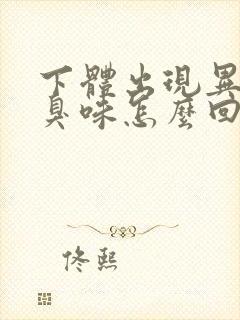 下體出現異
臭味怎麼回
佟熙